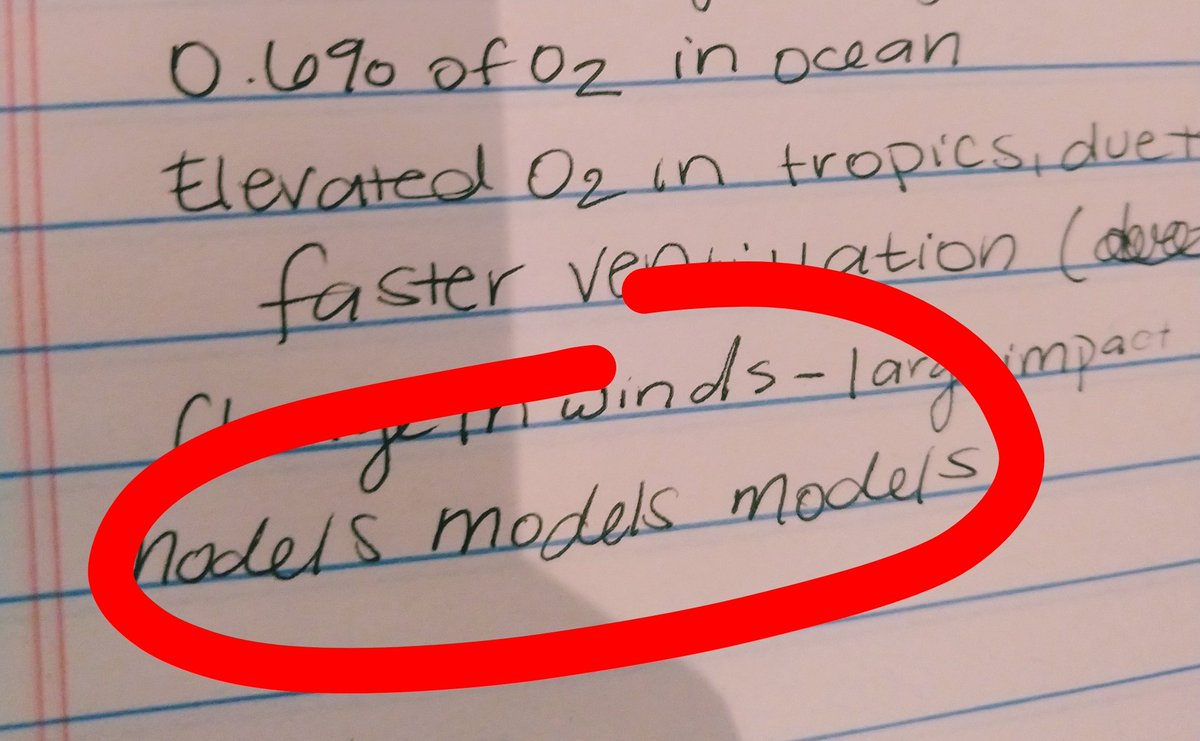 0.6% of O2 in ocean
Elevated O2 in tropics, due t
faster ventilation (
in winds - large impact
models models models